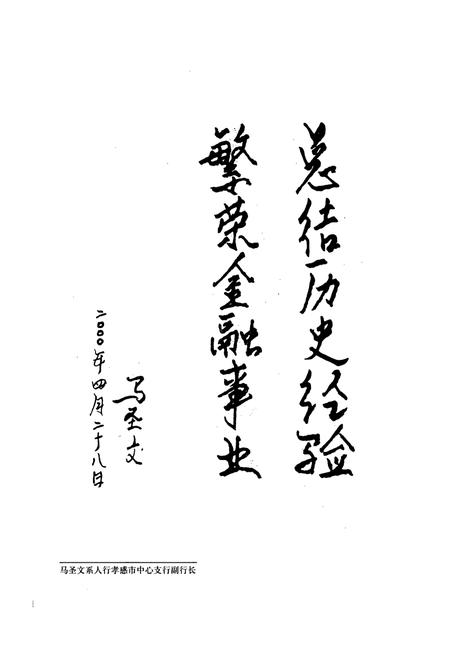 总结历史经验
繁荣金融事业
马圣文
二〇〇〇年四月二十八日
马圣文系人行孝感市中心支行副行长